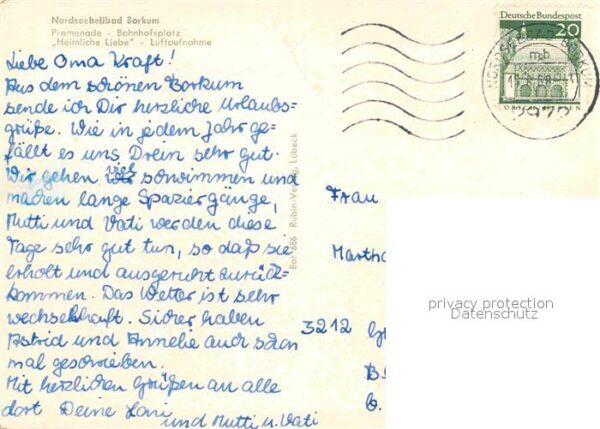 Nordseeheilbad Borkum
Promenade - Bahnhofsplatz
„Heimliche Liebe" - Luftaufnahme
Liebe Oma Kraft!
Aus dem schönen Borkum
sende ich Dir herzliche Urlaubs-
grüße. Wie in jedem Jahr ge-
fällt es uns Drein sehr gut.
Wir gehen viel schwimmen und
machen lange Spaziergänge,
Mutti und Vati werden diese
Tage sehr gut tun, so daß sie
erholt und ausgeruht zurück-
kommen. Das Wetter ist sehr
wechselhaft. Sicher haben
Astrid und Annelie auch schon
mal geschrieben.
Mit herzlichen Grüßen an alle
dort Deine
und Mutti u. Vati
Bor 686 Rubin-Verlag, Lübeck
Deutsche Bundespost
20
2972
Frau
Martha
3212
privacy protection
Datenschutz